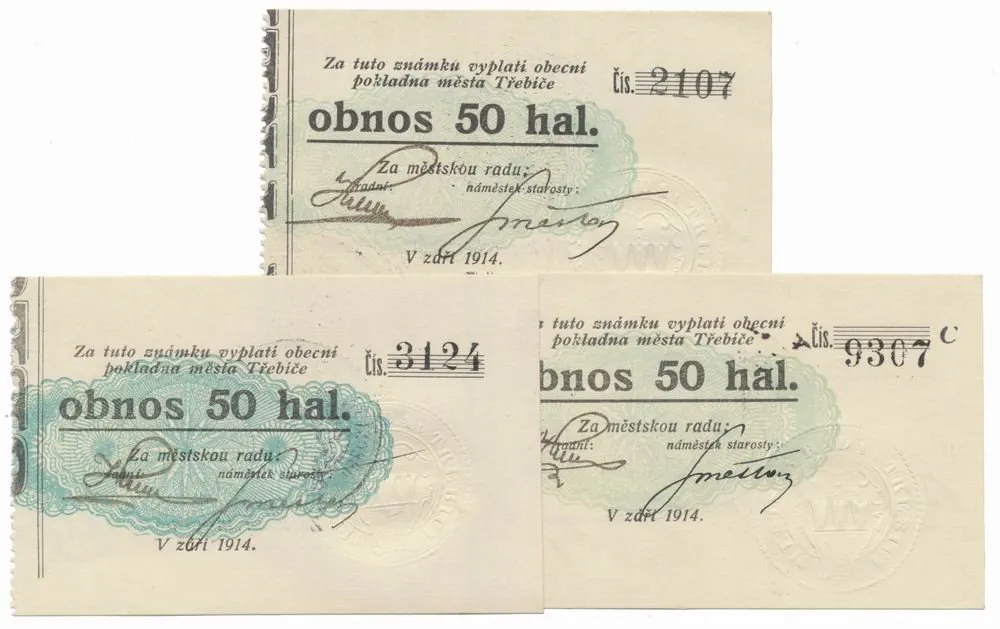 Za tuto známku vyplatí obecní
pokladna města Třebíče
Čís. 2107
obnos 50 hal.
Za městskou radu:
radní: náměstek starosty:
V září 1914.
Za tuto známku vyplatí obecní
pokladna města Třebíče
Čís. 3124
obnos 50 hal.
Za městskou radu:
radní: náměstek starosty:
V září 1914.
tuto známku vyplatí obecní
pokladna města Třebíče
Čís. 9307 C
bnos 50 hal.
Za městskou radu:
radní: náměstek starosty:
V září 1914.